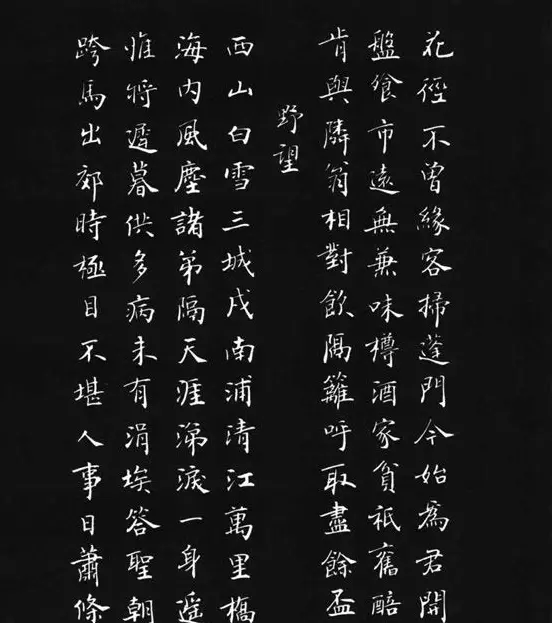 花徑不曾緣客掃蓬門今始為君開
盤飧市遠無兼味樽酒家貧祗舊醅
肯與隣翁相對飲隔籬呼取盡餘盃
野望
西山白雪三城戍南浦清江萬里橋
海内風塵諸弟隔天涯涕淚一身遥
惟將遲暮供多病未有涓埃答聖朝
跨馬出郊時極目不堪人事日蕭條